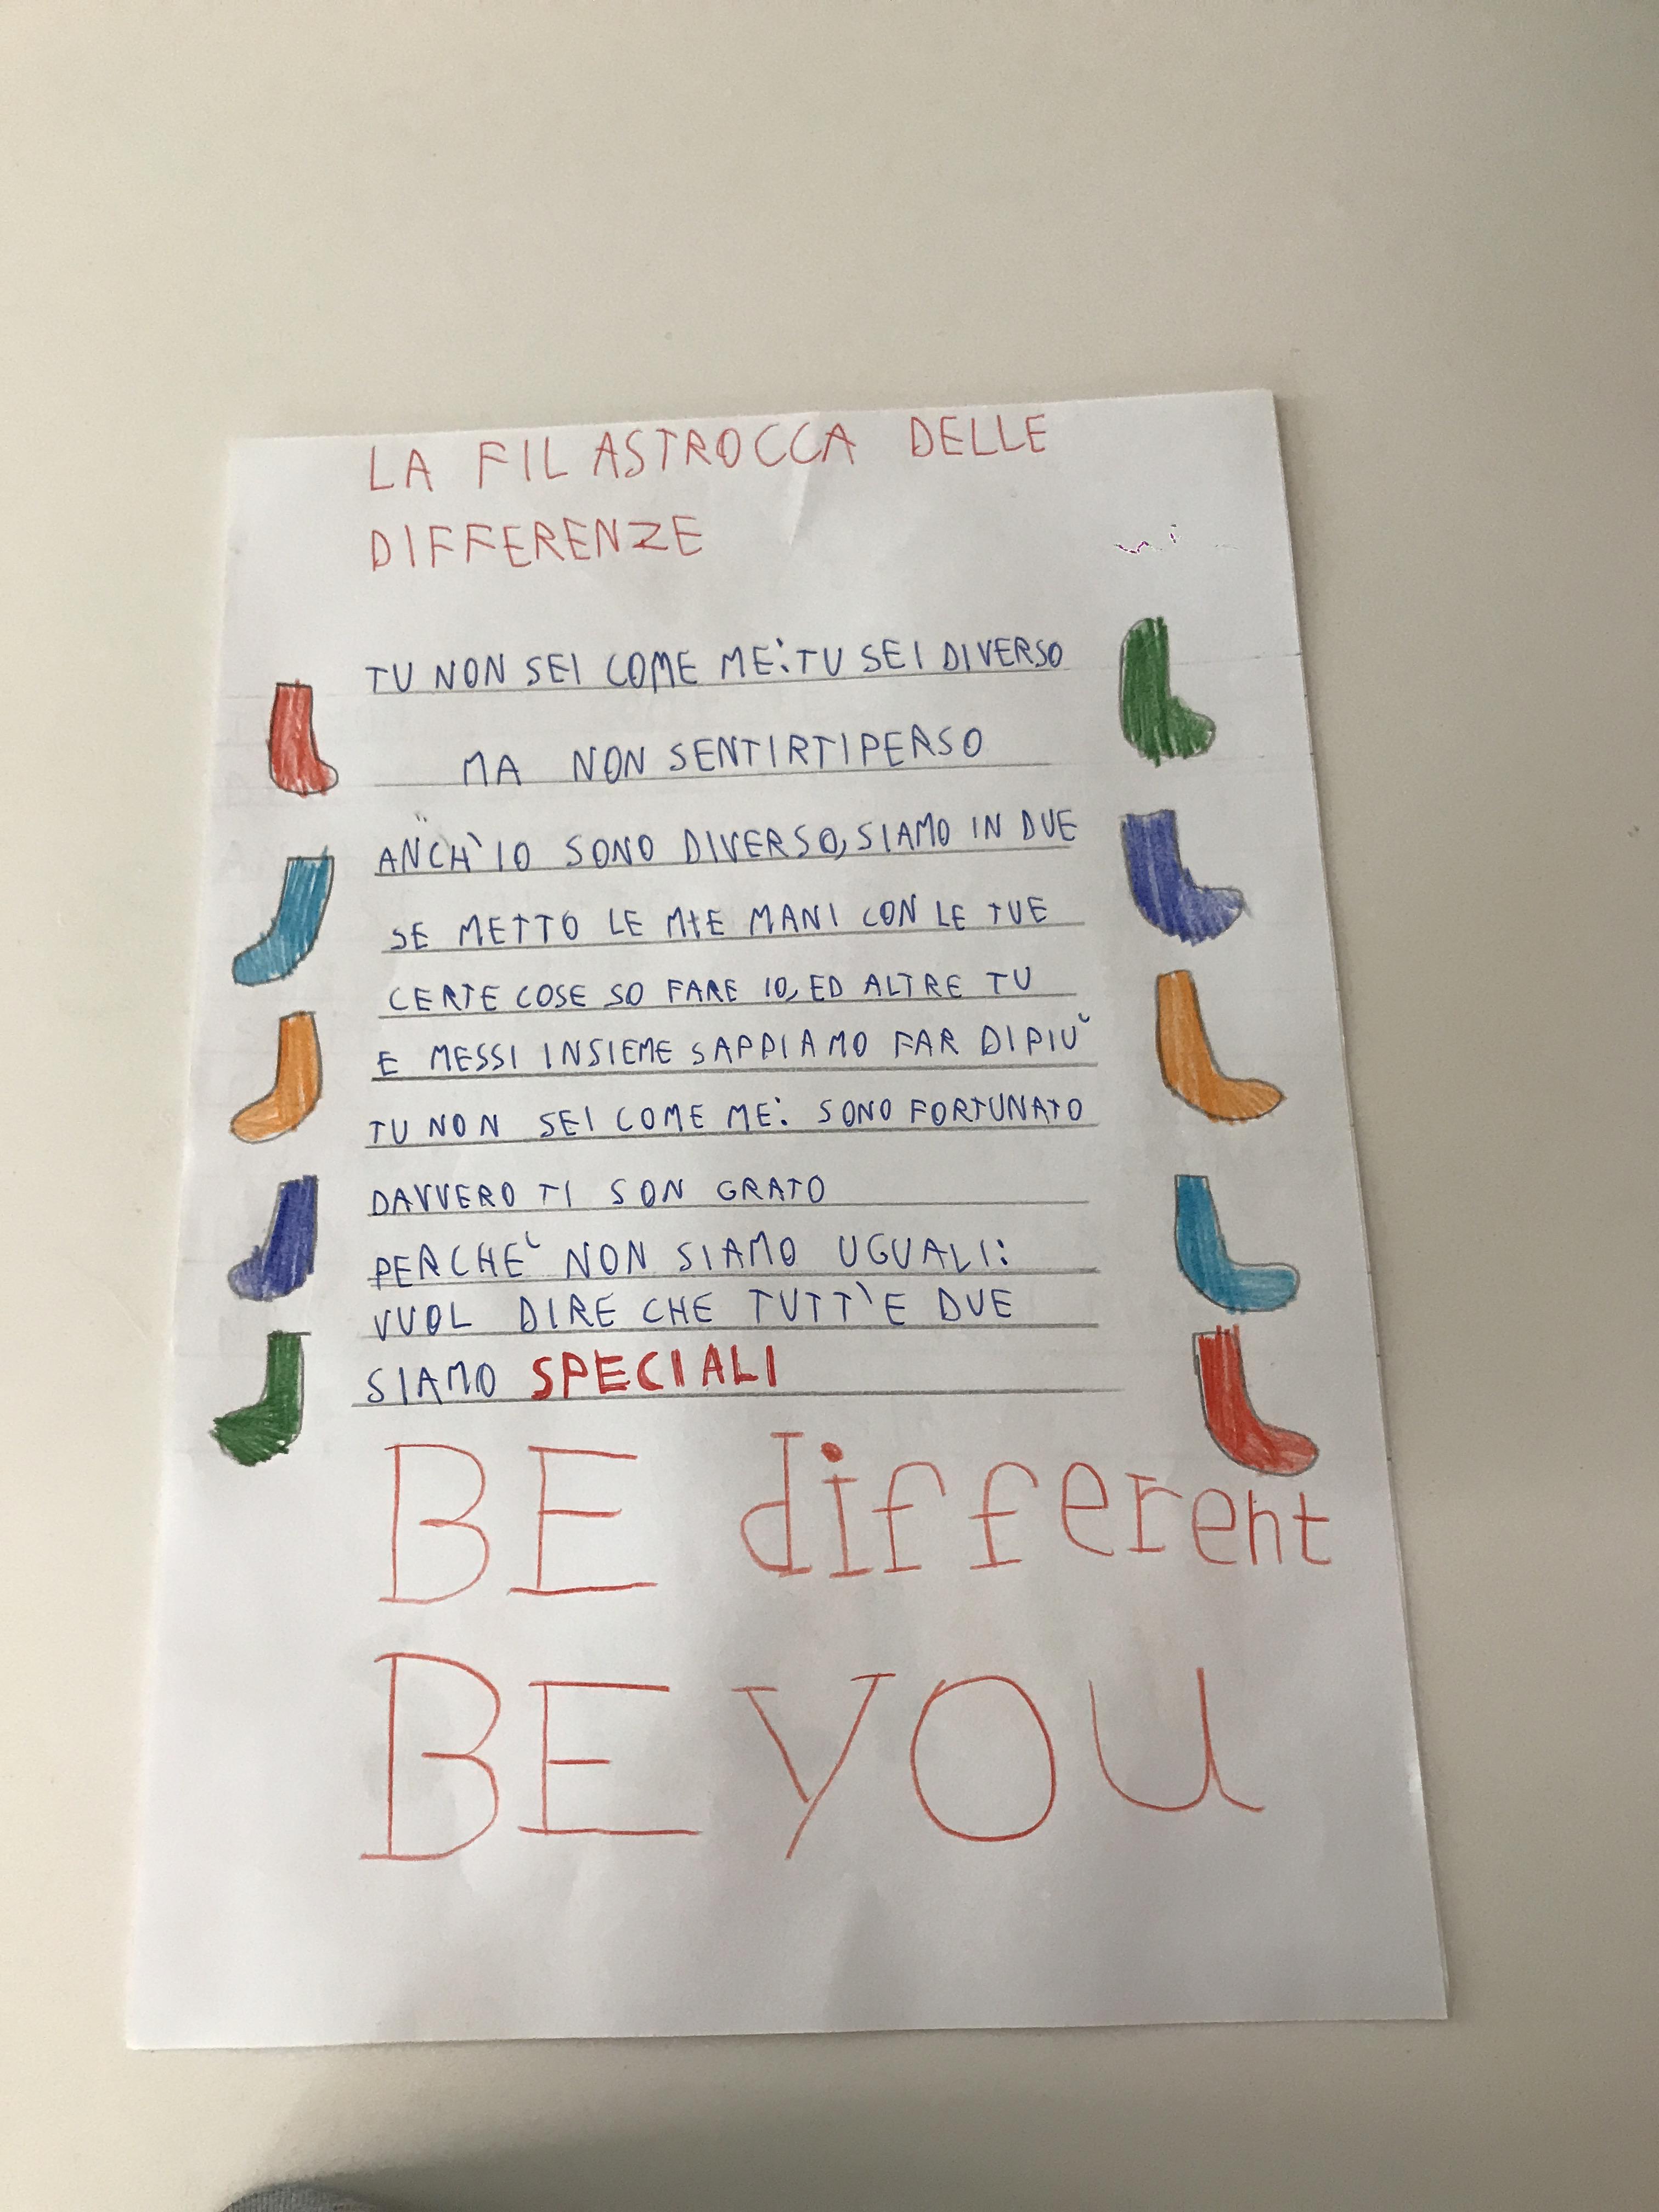 LA FILASTROCCA DELLE
DIFFERENZE
TU NON SEI COME ME: TU SEI DIVERSO
MA NON SENTIRTI PERSO
ANCH'IO SONO DIVERSO, SIAMO IN DUE
SE METTO LE MIE MANI CON LE TUE
CERTE COSE SO FARE IO, ED ALTRE TU
E MESSI INSIEME SAPPIAMO FAR DI PIU'
TU NON SEI COME ME: SONO FORTUNATO
DAVVERO TI SON GRATO
PERCHE' NON SIAMO UGUALI:
VUOL DIRE CHE TUTT'E DUE
SIAMO SPECIALI
BE different
BE YOU